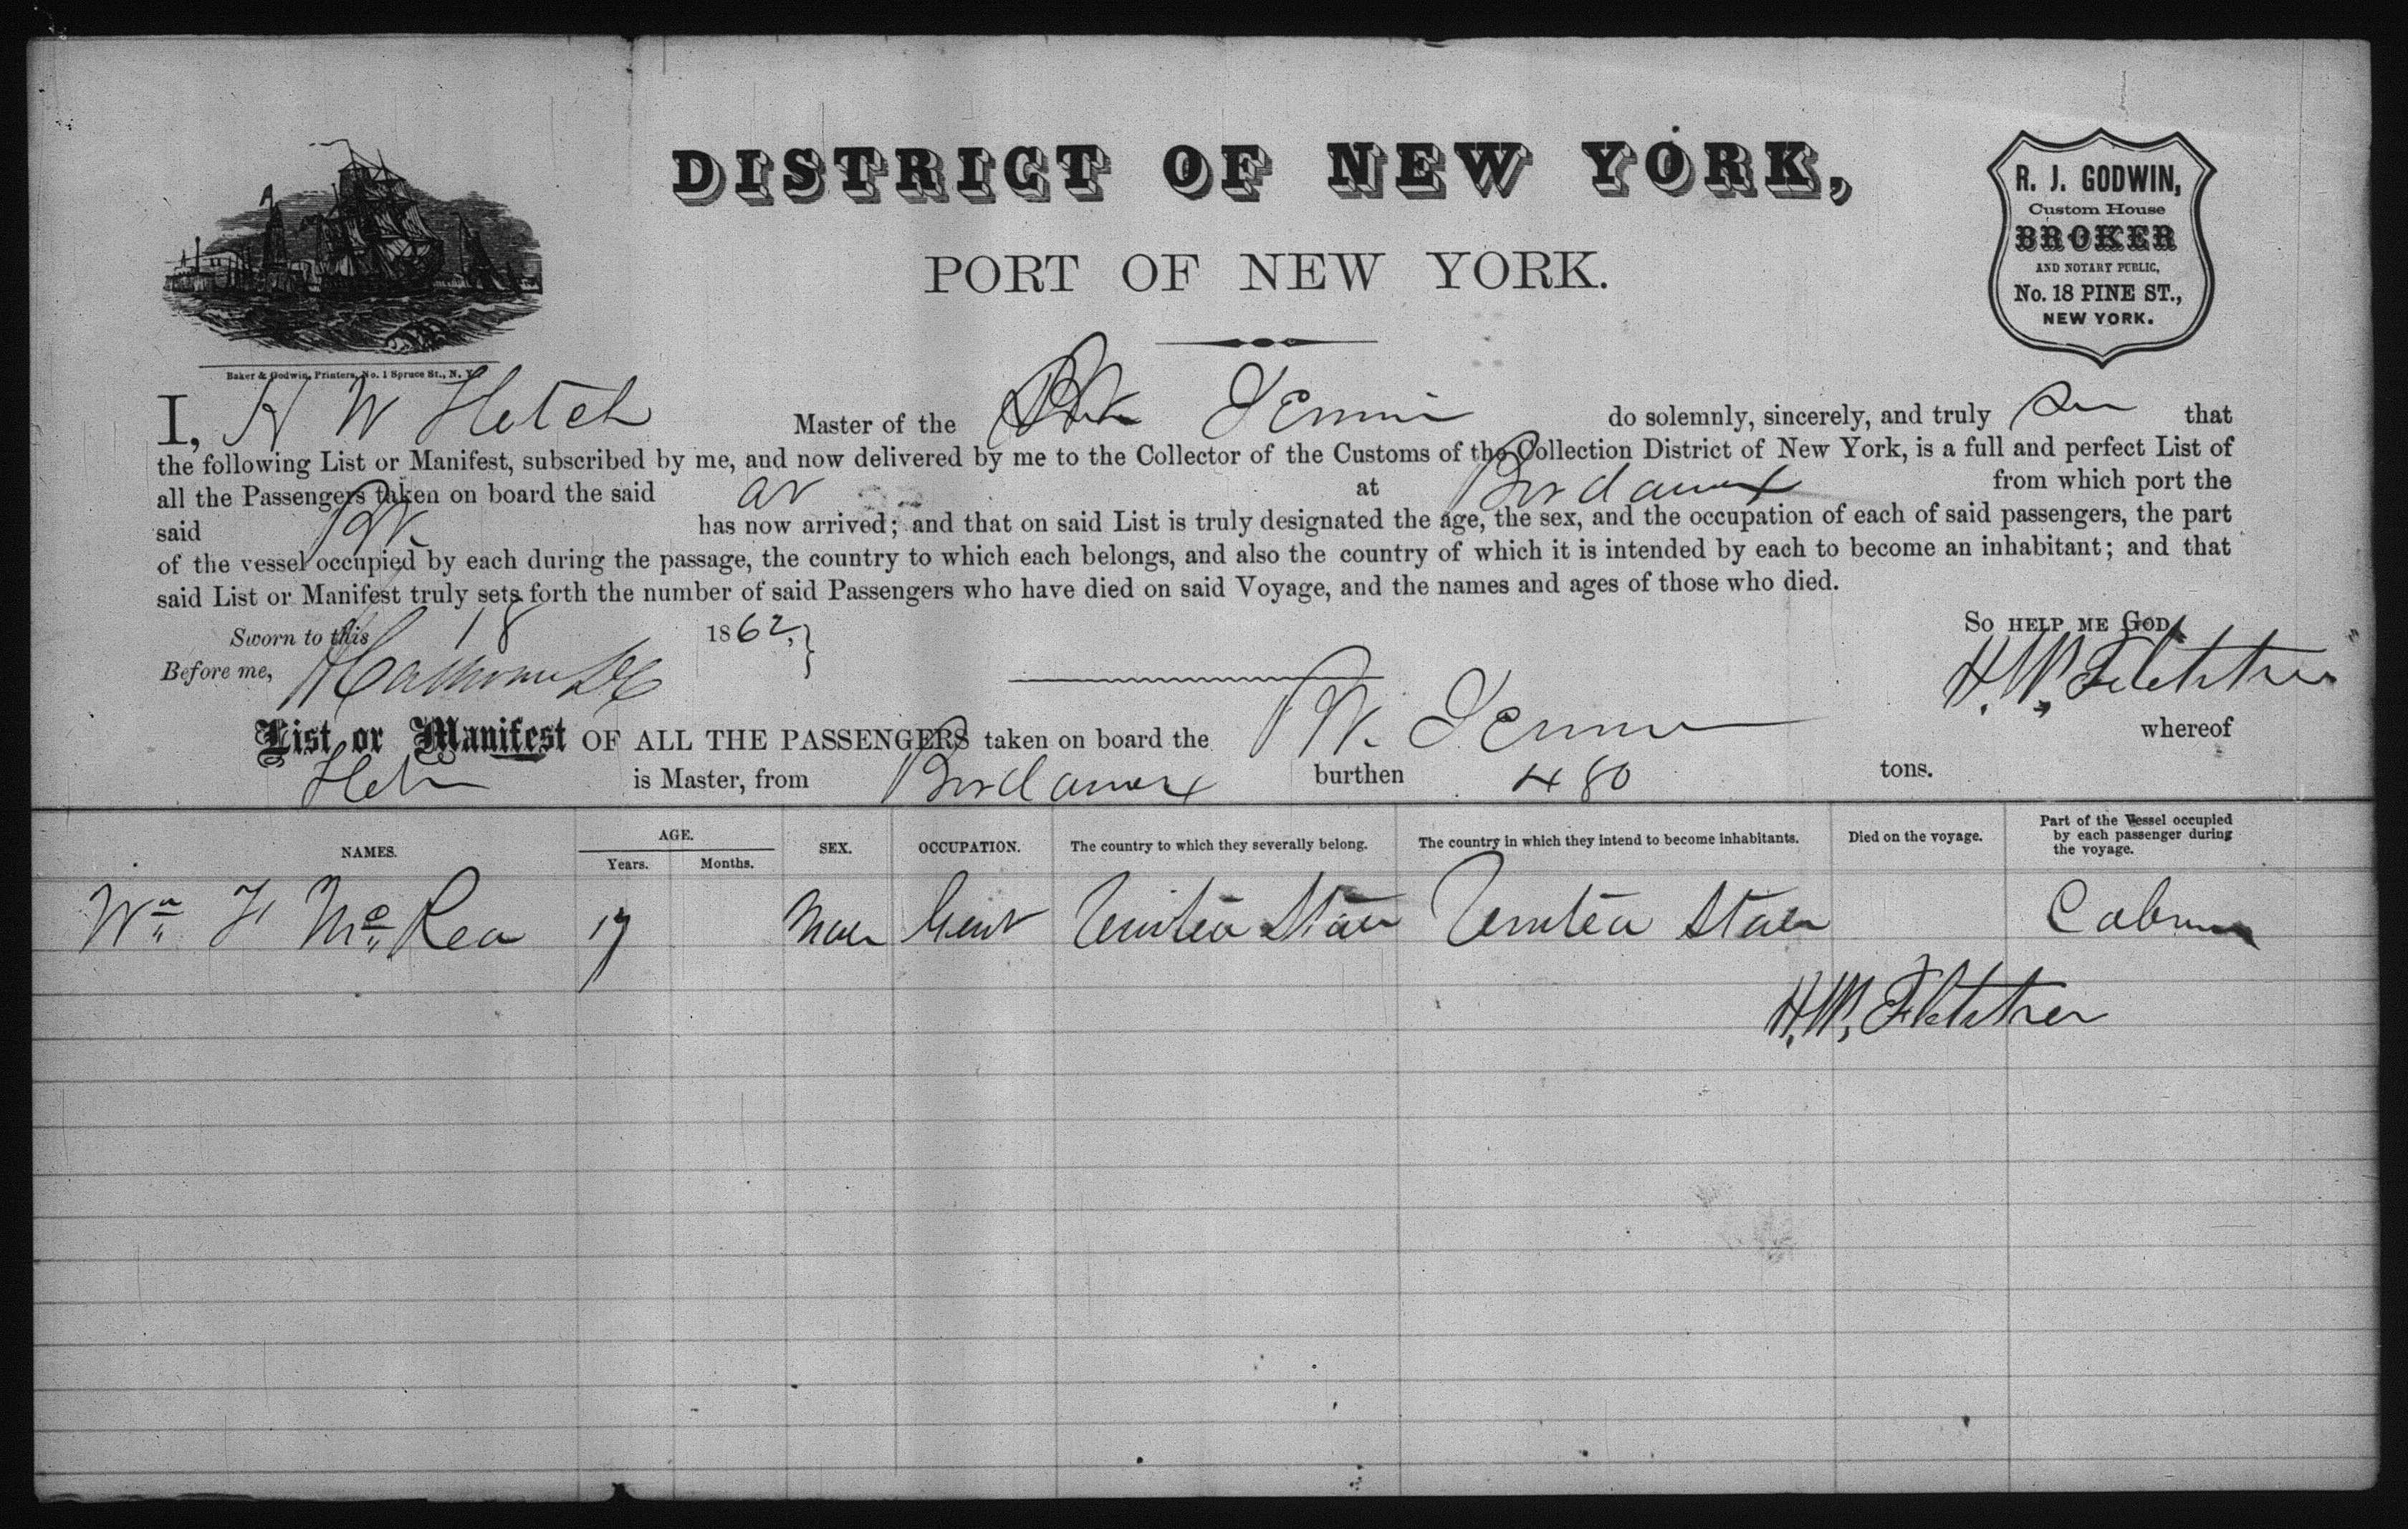 DISTRICT OF NEW YORK,
PORT OF NEW YORK.
R. J. GODWIN,
Custom House
BROKER
AND NOTARY PUBLIC,
No. 18 PINE ST.,
NEW YORK.
Baker & Godwin, Printers, No. 1 Spruce St., N. Y.
I, H W Master of the do solemnly, sincerely, and truly that
the following List or Manifest, subscribed by me, and now delivered by me to the Collector of the Customs of the Collection District of New York, is a full and perfect List of
all the Passengers taken on board the said at Bordeaux from which port the
said has now arrived; and that on said List is truly designated the age, the sex, and the occupation of each of said passengers, the part
of the vessel occupied by each during the passage, the country to which each belongs, and also the country of which it is intended by each to become an inhabitant; and that
said List or Manifest truly sets forth the number of said Passengers who have died on said Voyage, and the names and ages of those who died.
Sworn to this 18 1862, So help me God.
Before me, H. W. Fletcher
List or Manifest OF ALL THE PASSENGERS taken on board the whereof
is Master, from Bordeaux burthen 480 tons.
NAMES. AGE. Years. Months. SEX. OCCUPATION. The country to which they severally belong. The country in which they intend to become inhabitants. Died on the voyage. Part of the Vessel occupied by each passenger during the voyage.
Wm F McRea 17 Male Gent United States United States Cabin
H. W. Fletcher